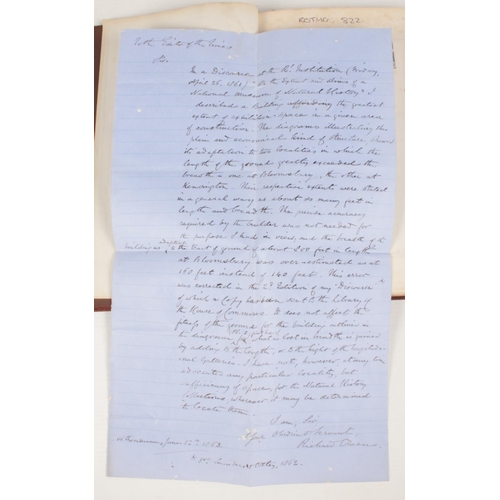 ROTHG. 822
To the Editor of the Times
Sir,
In a Discourse at the Rl. Institution (Friday,
April 26, 1861) "On the Extent and Aims of a
National Museum of Natural History" I
described a Building affording the greatest
extent of exhibition-space in a given area
of construction. The diagrams illustrating this
plain and economical kind of structure shewed
its adaptation to two localities in which the
length of the ground greatly exceeded the
breadth: one at Bloomsbury, the other at
Kensington. Their respective extents were stated
in a general way as about so many feet in
length and breadth. The precise accuracy
required by the builder was not needed for
the purpose I had in view, and the breadth of the
building as adapted to the tract of ground of about 500 feet in length
at Bloomsbury was over-estimated as at
160 feet instead of 140 feet. This error
was corrected in the 2d. Edition of my "Discourse"
of which a Copy has been sent to the Library of
the House of Commons. It does not affect the
of the ground for the building outlined in
the diagram, what is lost in breadth is gained
by adding to the length, or to the height of the
galleries. I have not, however, at any time
advocated any particular locality, but
sufficiency of space, for the Natural History
Collections, wherever it may be determined
to locate them.
I am, Sir,
Your Obedient Servant,
Richard Owen
Athenaeum, June 12th. 1862.
* 8vo. Saunders & Otley, 1862.